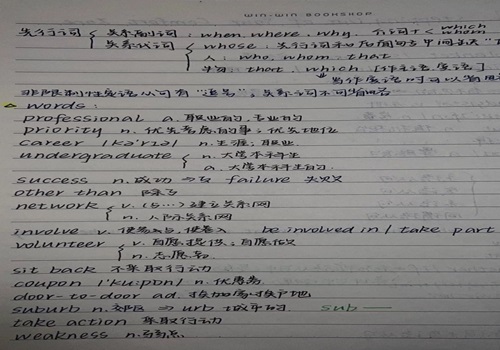 WIN-WIN BOOKSHOP
先行词 { 关系副词：when, where, why, 介词+< which whom
关系代词 { whose：先行词和后面句子中间是"
人：who, whom, that
物：that, which [作主语,宾语]
当作宾语时可以省略
非限制性定语从句有"逗号"；关系词不可省略
words：
professional a.职业的,专业的
priority n.优先考虑的事；优先地位
career /kə'rɪə/ n.生涯,职业
undergraduate { n.大学本科生
a.大学本科生的
success n.成功 → 反 failure 失败
other than 除了
network { v.(与…)建立关系网
n.人际关系网
involve v.使参与,使卷入 be involved in / take part
volunteer { v.自愿提供；自愿做
n.志愿者
sit back 不采取行动
coupon /'kuːpɒn/ n.优惠券
door-to-door ad.挨家挨户地
suburb n.郊区 → urb 城市的 sub—
take action 采取行动
weakness n.弱点